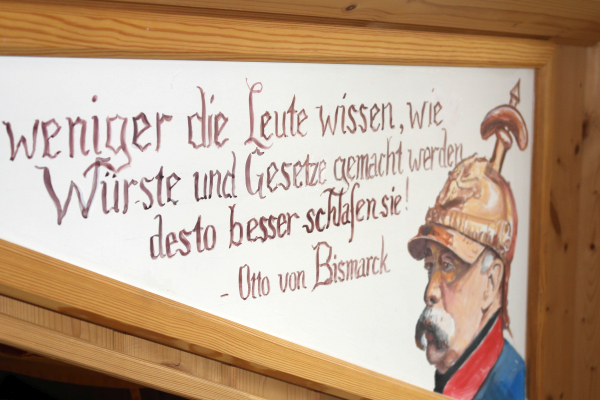 weniger die Leute wissen, wie
Würste und Gesetze gemacht werden
desto besser schlafen sie!
- Otto von Bismarck